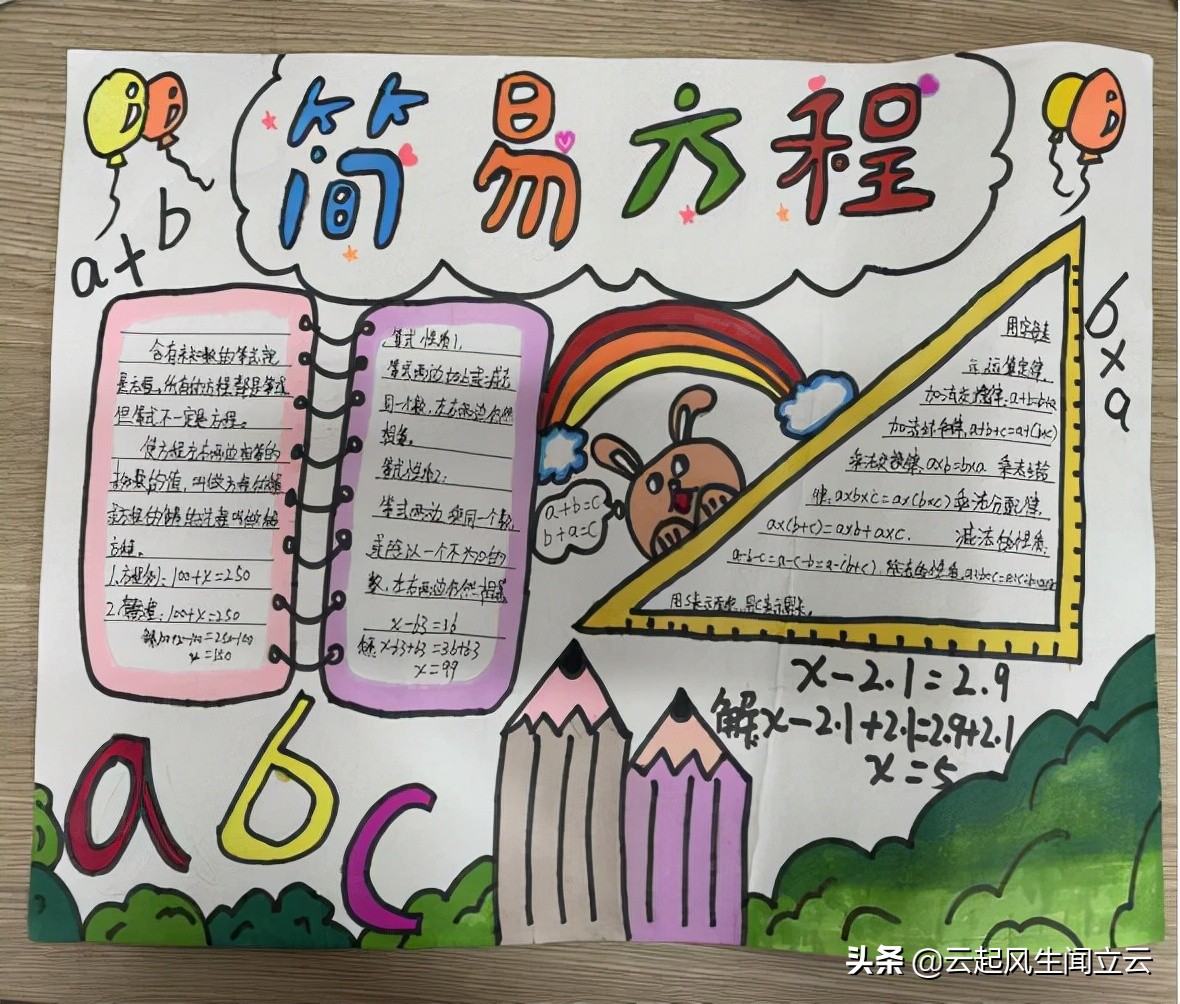 简易方程
a+b
b×a
含有未知数的等式就
是方程,所有的方程都是等式
但等式不一定是方程。
使方程左右两边相等的
未知数的值,叫做方程的解
求方程的解的过程叫做解
方程。
1.方程例:100+x=250
2.解方程:100+x=250
解100+x-100=250-100
x=150
等式性质1,
等式两边加上或减去
同一个数,左右两边仍然
相等。
等式性质2:
等式两边乘同一个数,
或除以一个不为0的
数,左右两边仍然相等
x-63=36
解x-63+63=36+63
x=99
a+b=c
b+a=c
用字母表
示运算定律
加法交换律,a+b=b+a
加法结合律,a+b+c=a+(b+c)
乘法交换律,a×b=b×a 乘法结合
律,a×b×c=a×(b×c)乘法分配律,
a×(b+c)=a×b+a×c. 减法的性质,
a-b-c=a-c-b=a-(b+c),除法的性质,
用S表示面积,用C表示周长
x-2.1=2.9
解x-2.1+2.1=2.9+2.1
x=5
a b c
头条 @云起风生闻立云